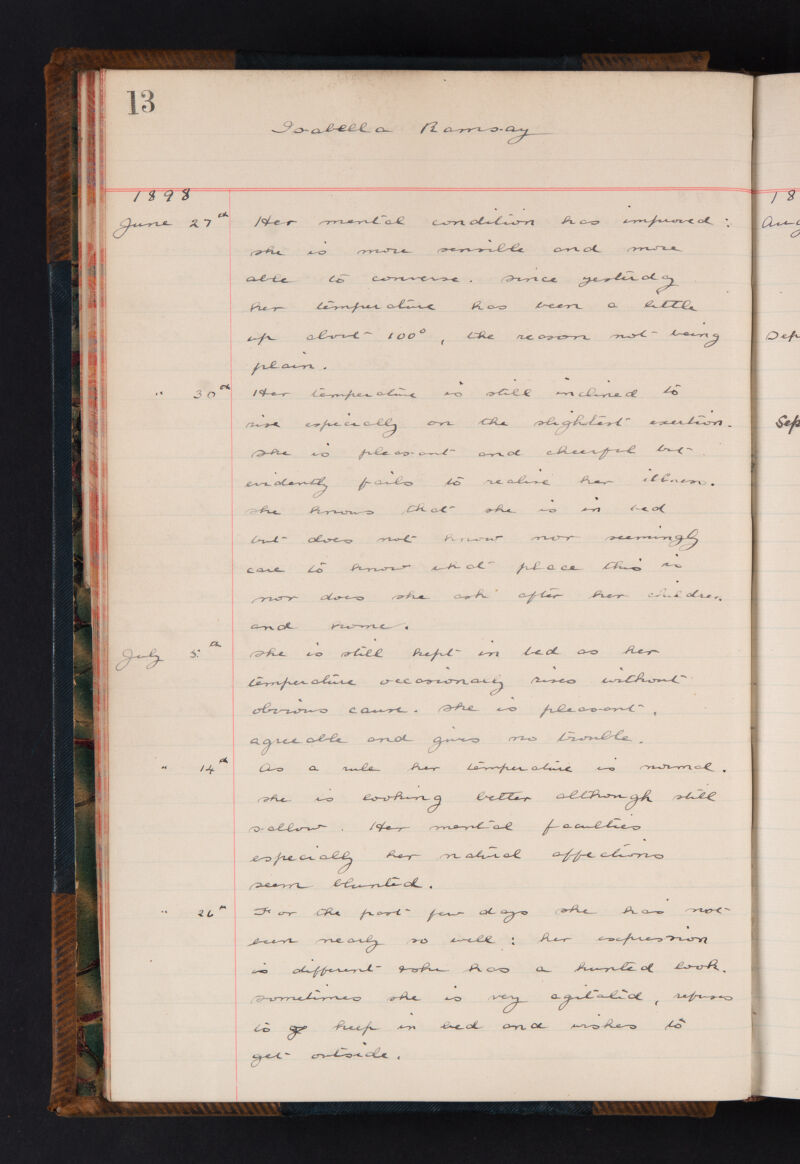 13
Isabella Ramsay
1898
June 27th Her mental condition has improved :
she is more sensible and more
able to converse. Since yesterday
her temperature has been a little
up about 100°, the reason not being
plain.
" 30th Her temperature is still inclined to
rise especially on the slightest exertion.
She is pleasant and cheerful but
evidently fails to realise her illness.
She knows that she is in bed
but does not know nor seemingly
care to know what place this is
nor does she ask after her children
and home.
July 5th She is still kept in bed as her
temperature occasionally rises without
obvious cause. She is pleasant,
agreeable and gives no trouble.
" 14th As a rule her temperature is normal.
She is looking better although still
sallow. Her mental faculties
especially her natural affections
seem blunted.
" 26th For the past few days she has not
been nearly so well : her expression
is different & she has a hunted look.
Sometimes she is very agitated, refuses
to keep in bed and wishes to
get outside.
18
Aug
Sep
Sep